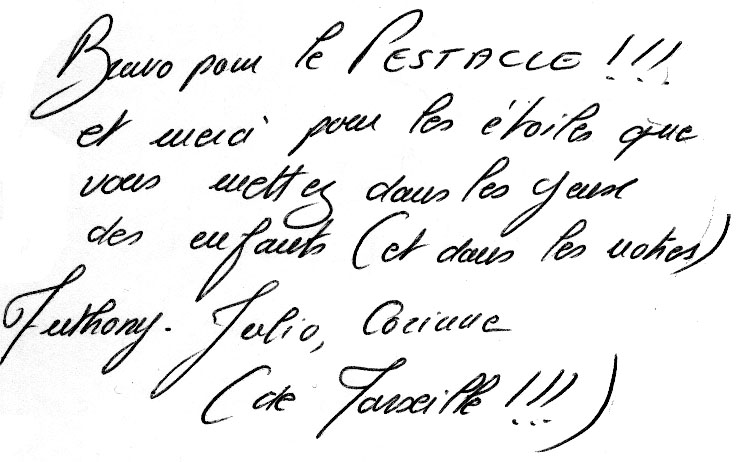 Bravo pour le PESTACLE !!!
et merci pour les étoiles que
vous mettez dans les yeux
des enfants (et dans les notres)
Anthony. Julio, Corinne
(de Marseille !!!)